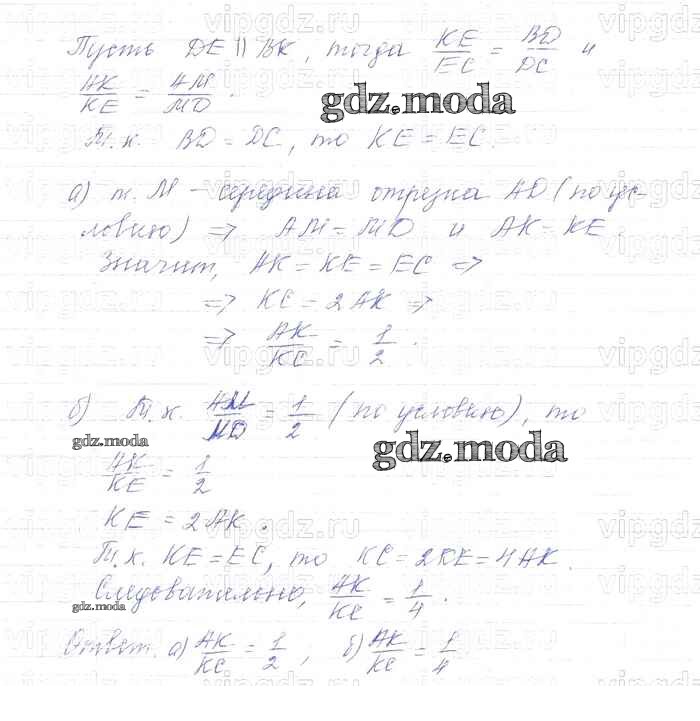 Пусть DE || BK, тогда KE/EC = BD/DC и
AK/KE = AM/MD.
gdz.moda
Т.к. BD = DC, то KE = EC.
а) т. M - середина отрезка AD (по ус-
ловию) => AM = MD и AK = KE.
Значит, AK = KE = EC =>
=> KC = 2AK =>
=> AK/KC = 1/2.
б) Т.к. AM/MD = 1/2 (по условию), то
gdz.moda
gdz.moda
AK/KE = 1/2
KE = 2AK.
Т.к. KE = EC, то KC = 2KE = 4AK.
Следовательно, AK/KC = 1/4.
gdz.moda
Ответ. а) AK/KC = 1/2; б) AK/KC = 1/4
vipgdz.ru